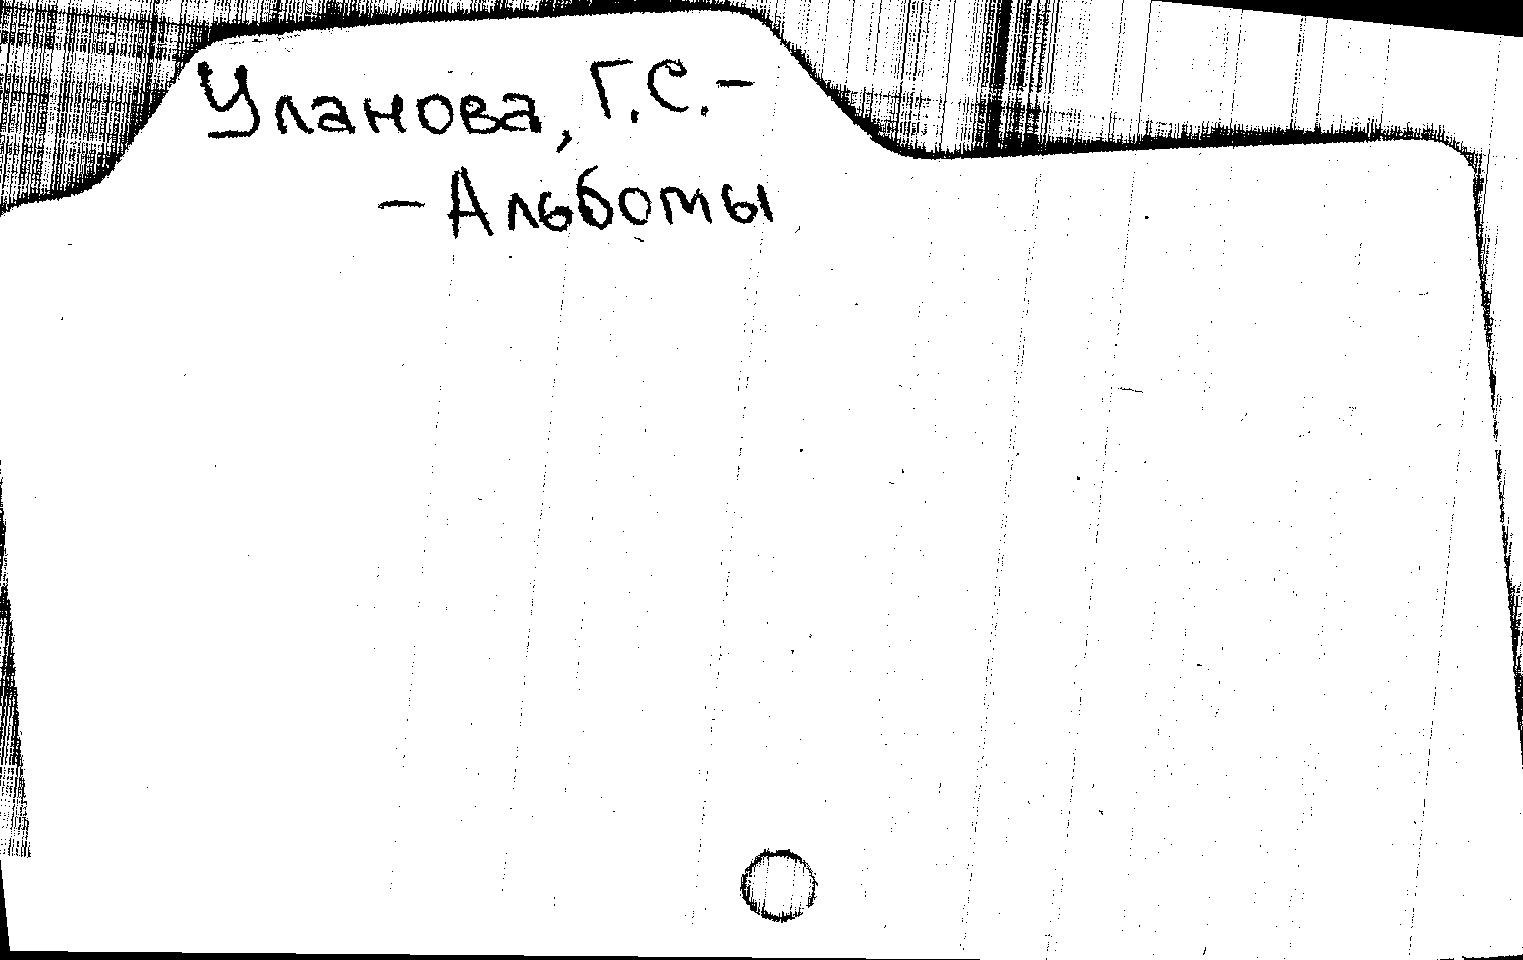 Уланова, Г.С.-
- Альбомы